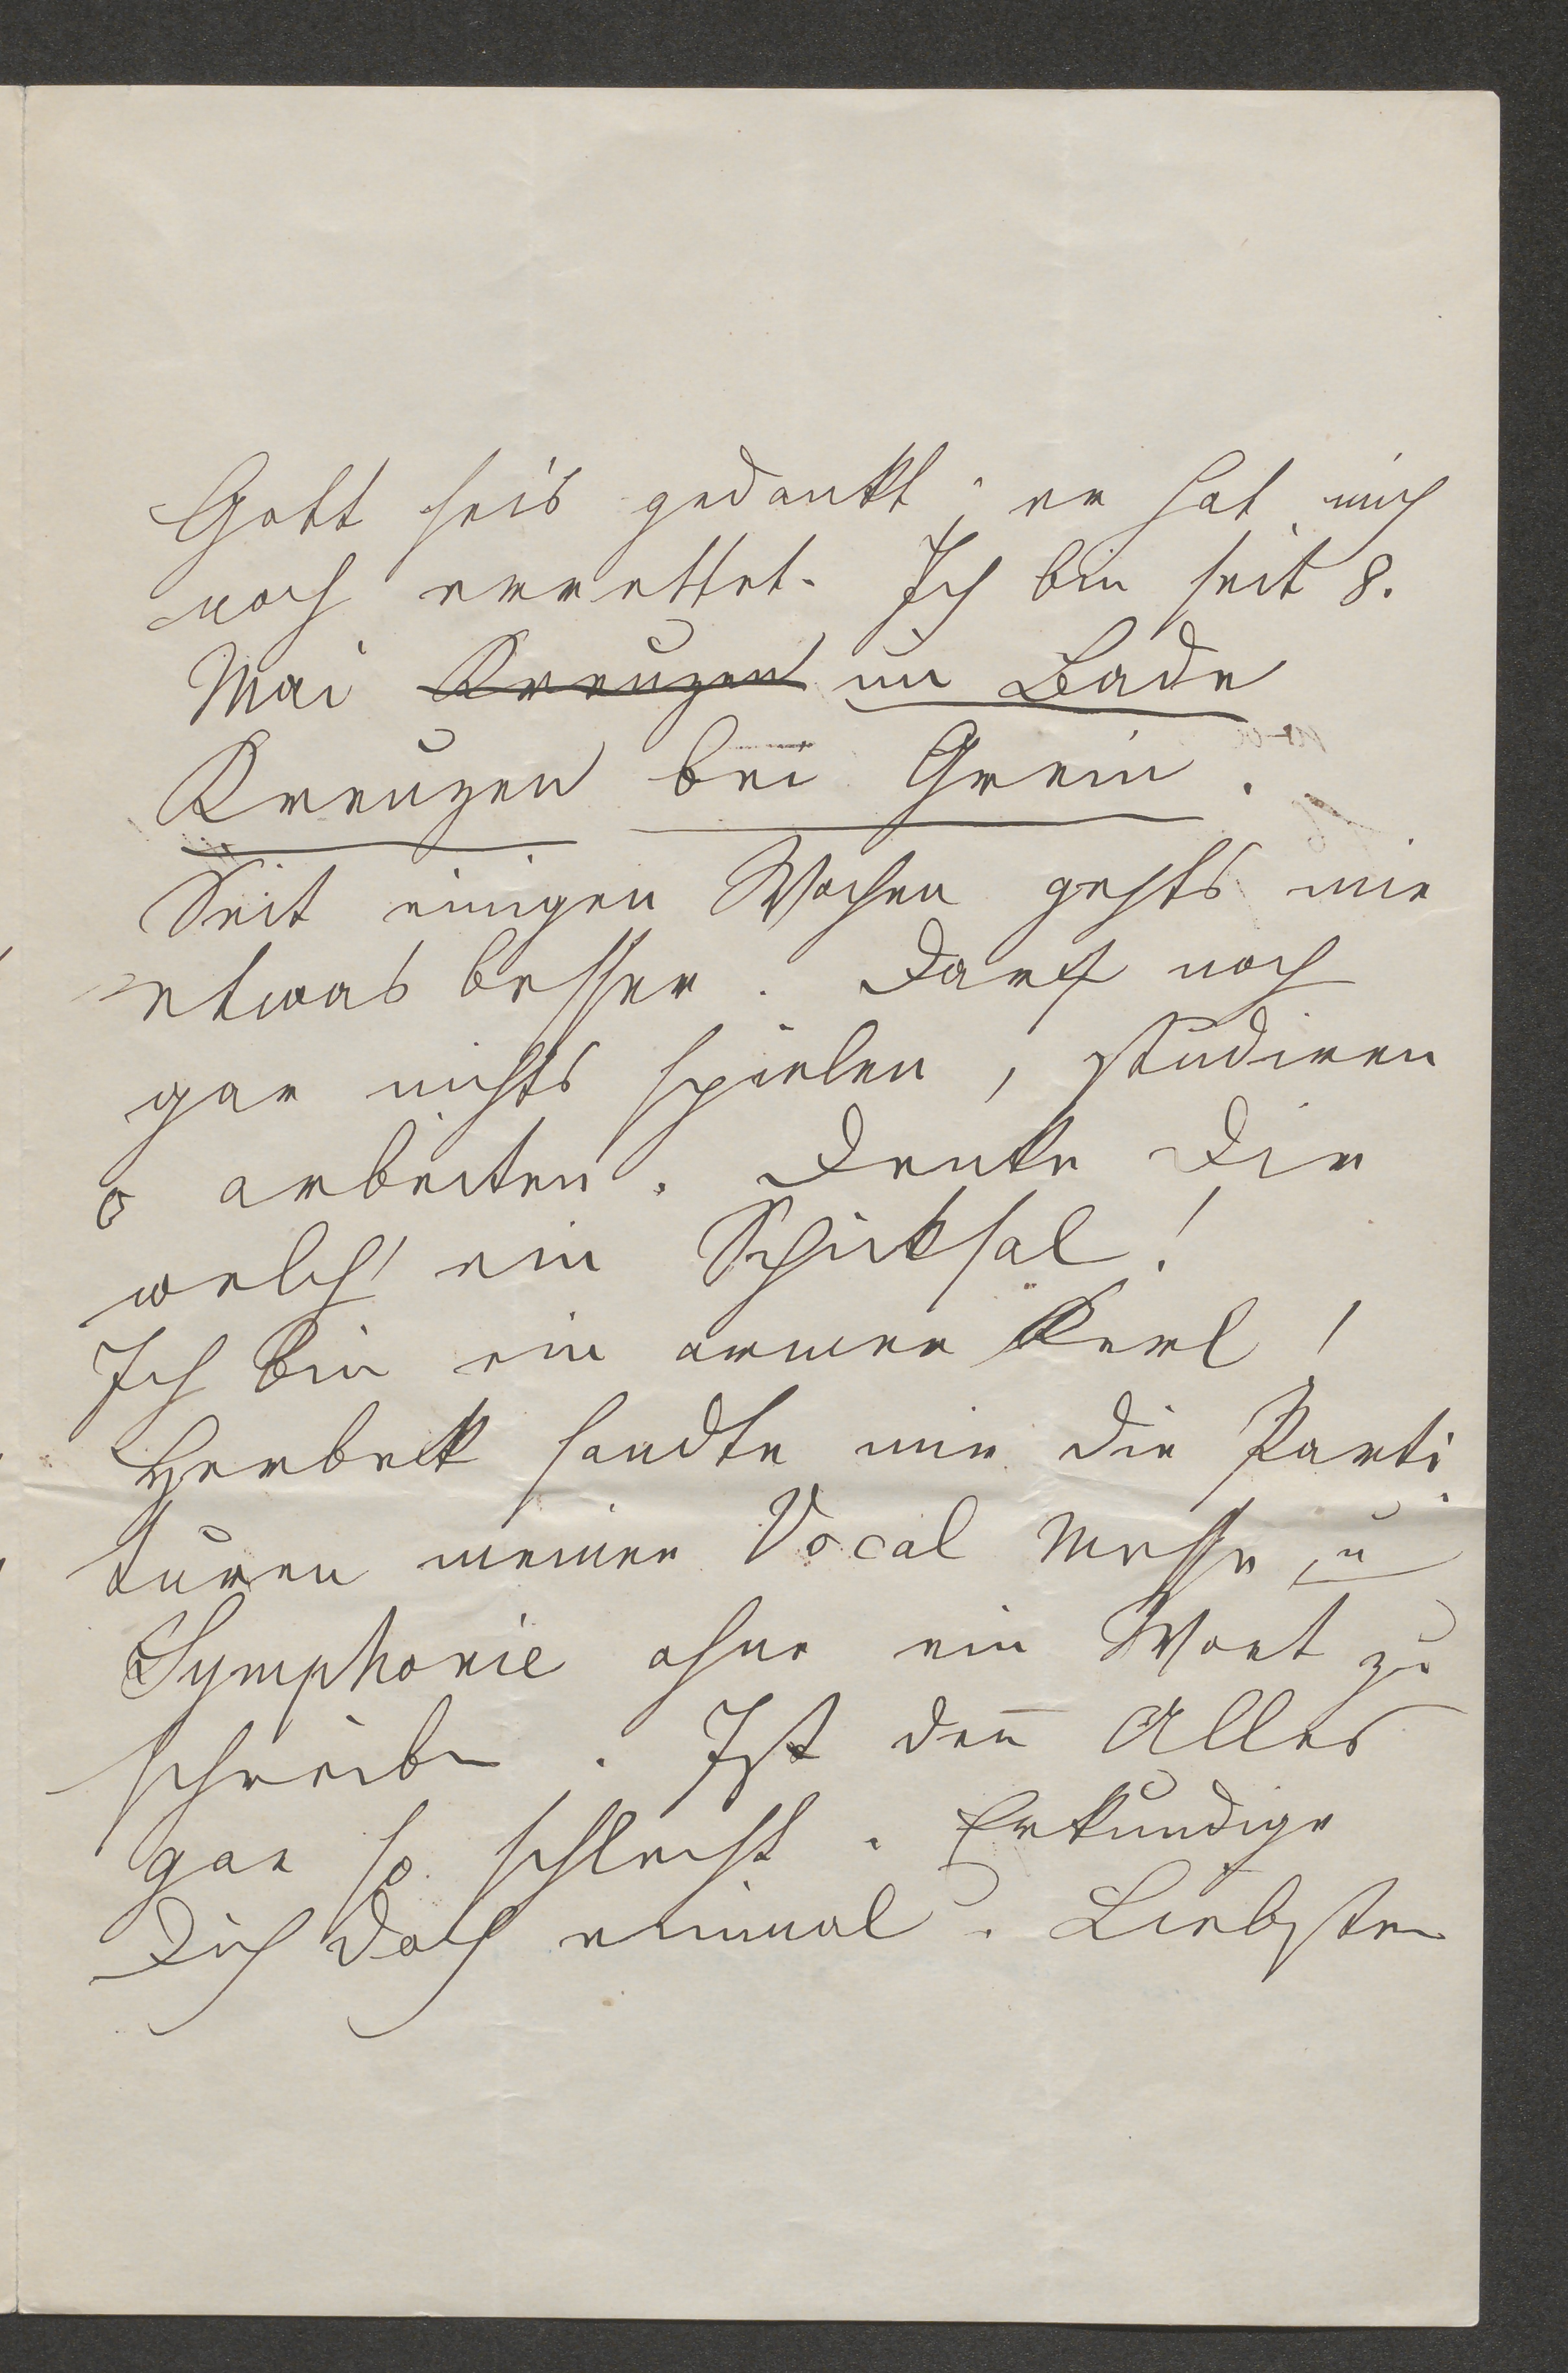 Gott seis gedankt; er hat mich
noch errettet. Ich bin seit 8.
Mai Kreuzen im Bade
Kreuzen bei Grein.
Seit einigen Wochen gehts mir
etwas besser. Darf noch
gar nichts spielen, studiren
o arbeiten. Denke Dir
welch' ein Schicksal!
Ich bin ein armer Kerl!
Herbeck sandte mir die Parti
turen meiner Vocal Messe u
Symphonie ohne ein Wort zu
schreiben. Ist den̅ Alles
gar so schlecht. Erkundige
Dich doch einmal. Liebster